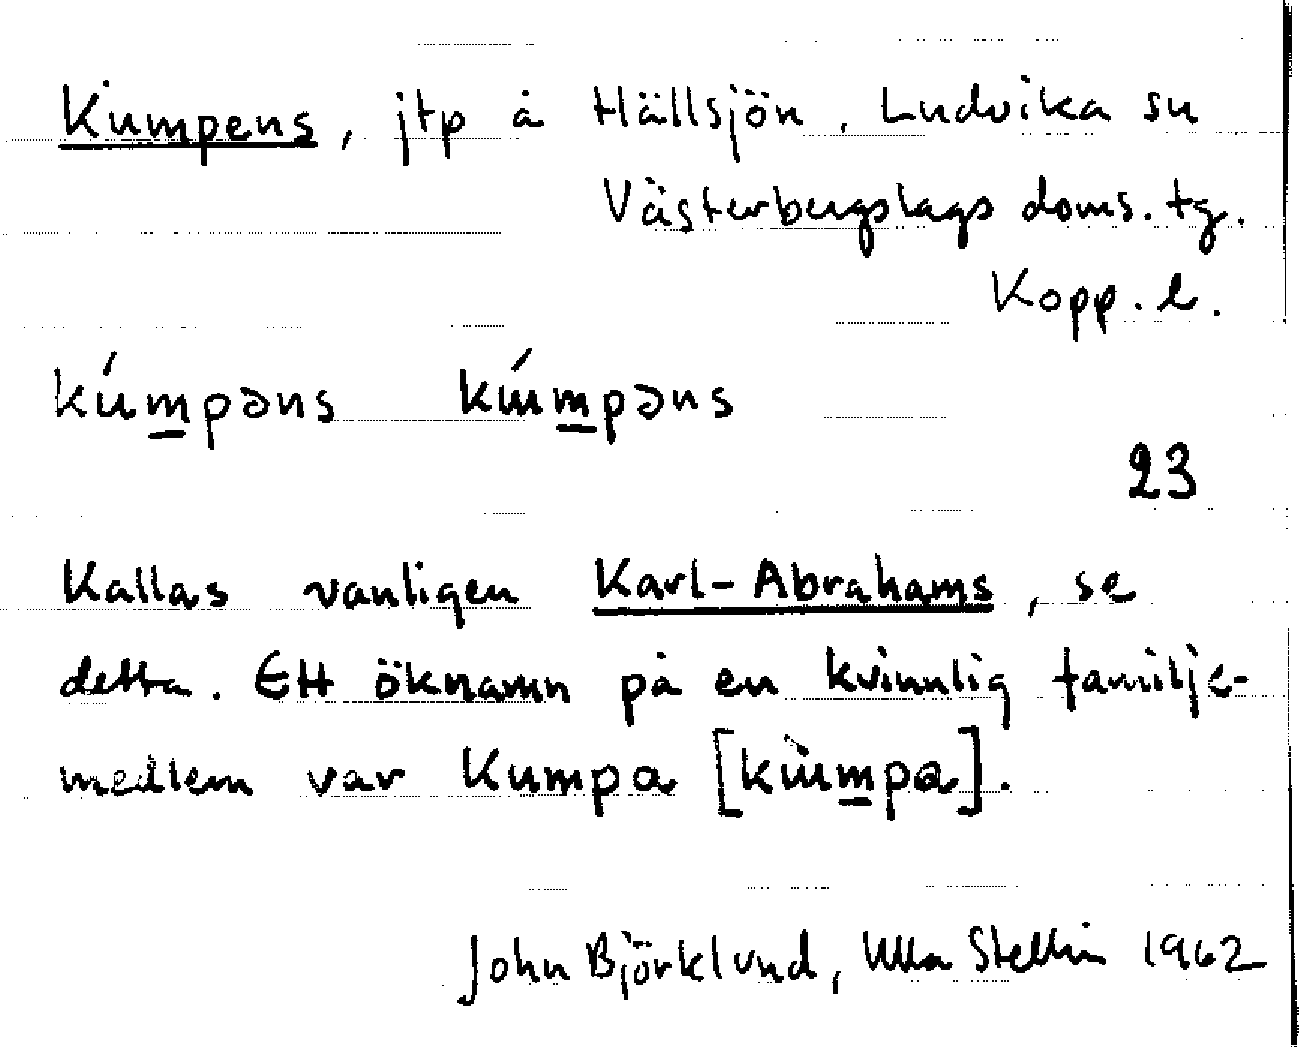 Kumpens, jtp å Hällsjön, Ludvika sn
Västerbergslags doms. tg.
Kopp. l.
kúmpəns kúmpəns
23
Kallas vanligen Karl-Abrahams, se
detta. Ett öknamn på en kvinnlig familje-
medlem var Kumpa [kùmpa].
John Björklund, Ulla Stellin 1962